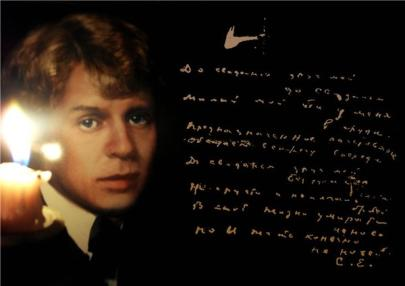 До свиданья друг мой
до свиданья
Милый мой ты у меня
в груди.
Предназначенное расставанье
обещает встречу впереди
До свиданья друг мой
без
В этой жизни умирать
не ново
но и жить конечно
не новей.
С. Е.